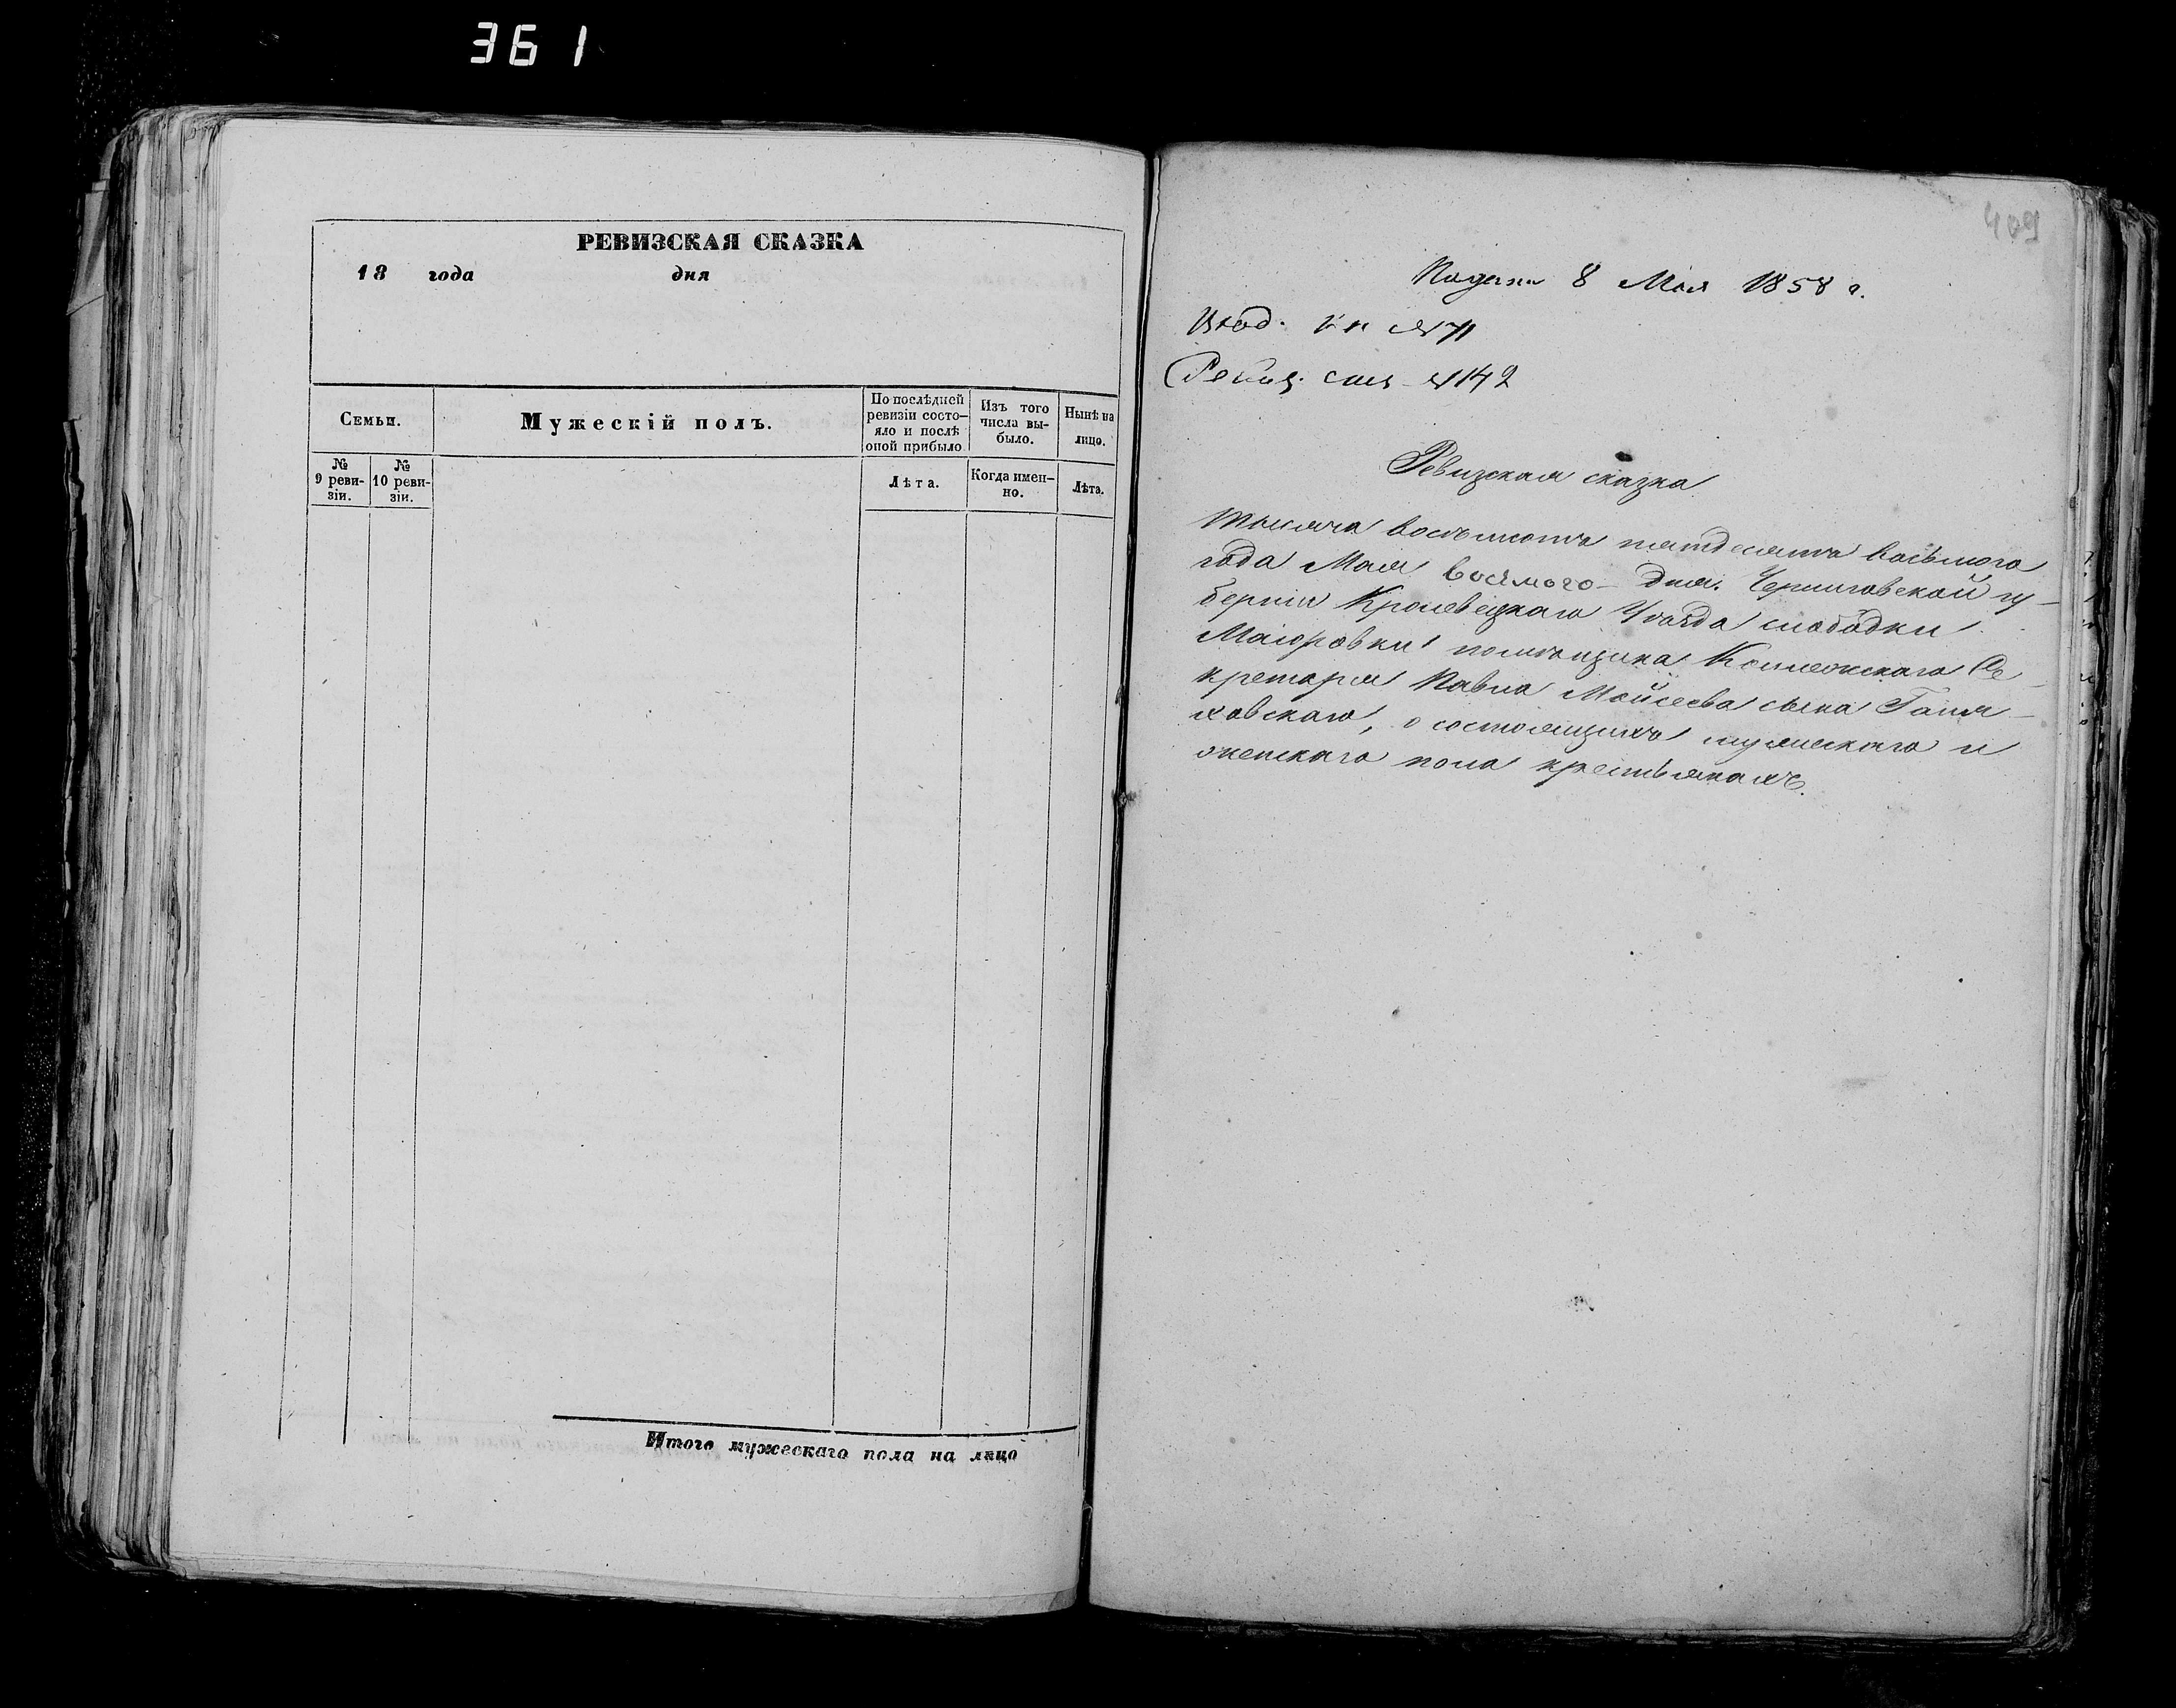 361
РЕВИЗСКАЯ СКАЗКА
18 года дня
Семьи.
Мужескій полъ.
По послѣдней ревизіи состо-
яло и послѣ оной прибыло
Изъ того числа вы-
было.
Нынѣ на лицо.
№ 9 реви-
зіи.
№ 10 реви-
зіи.
Лѣта.
Когда имен-
но.
Лѣта.
Итого мужескаго пола на лицо
409
8 Мая 1858 г.
Вход. № 71
Ревиз. № 142
Ревизская сказка
Тысяча восемьсотъ пятдесятъ восьмого
года Мая восьмого дня. Черниговской гу-
берніи Кролевецкаго Уѣзда слободки
Маіоровки помѣщика Коллежскаго Се-
кретаря Павла Мойсеева сына
о состоящихъ мужескаго и
женскаго пола крестьянахъ.